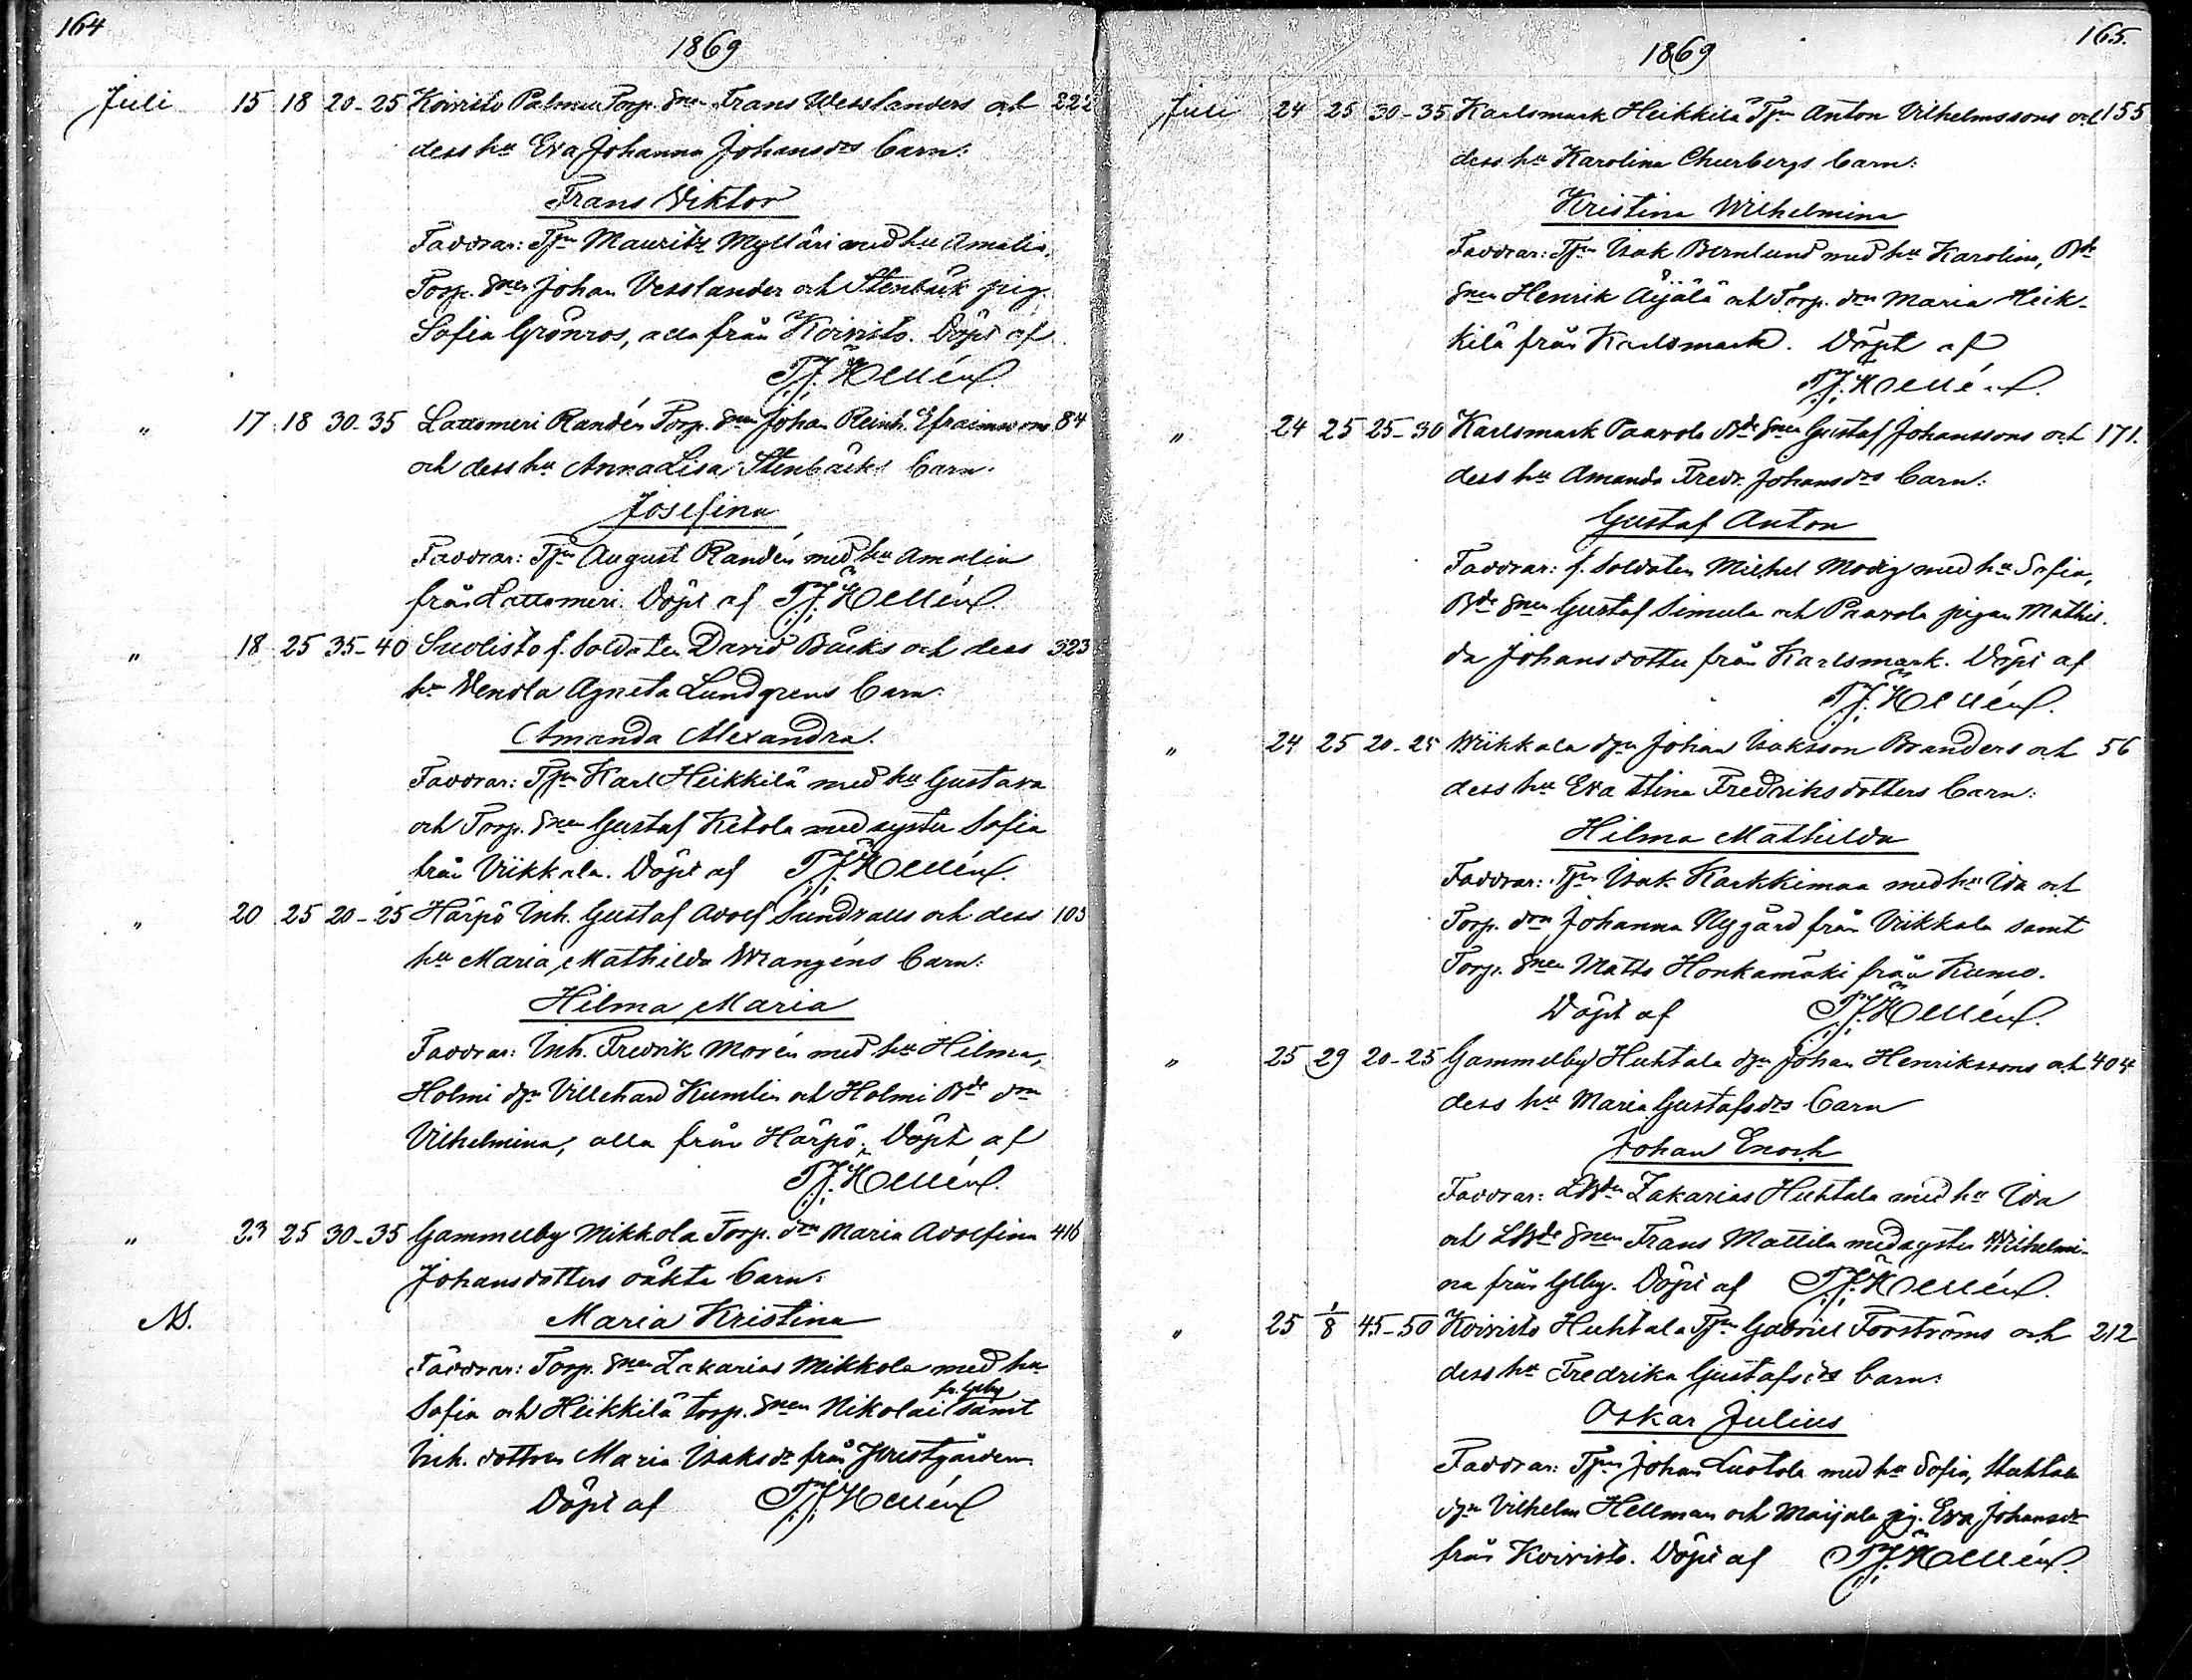 164
1869
Juli 15 18 20-25 Koivisto Palmu Torp. Snen Frans Wesslanders och 222
dess hu Eva Johanna Johansdrs barn:
Frans Viktor
Faddrar: Tjn Mauritz Mylläri med hu Amalia,
Torp. Snen Johan Vesslander och Stenbäck pig.
Sofia Grönros, alla från Koivisto. Döpt af
T.J. Hellén.
" 17 18 30-35 Lattomeri Randén Torp. Snen Johan Reinh. Efraimssons 84
och dess hu Anna Lisa Stenbäcks barn.
Josefina
Faddrar: Tjn August Randén med hu Amalia
från Lattomeri. Döpt af T.J. Hellén.
" 18 25 35-40 Suolisto f. Soldaten David Bäcks och dess 323
hu Vendla Agneta Lundgrens barn.
Amanda Alexandra.
Faddrar: Tjn Karl Heikkilä med hu Gustava
och Torp. Snen Gustaf Ketola med syster Sofia
från Viikkala. Döpt af T.J. Hellén.
" 20 25 20-25 Härpö Inh. Gustaf Adolf Sundvalls och dess 103
hu Maria Mathilda Wrangéns barn:
Hilma Maria
Faddrar: Inh. Fredrik Morén med hu Hilma,
Holmi dgn Villehard Kumlin och Holmi Bde drn
Vilhelmina, alla från Härpö. Döpt af
T.J. Hellén.
" 23 25 30-35 Gammelby Mikkola Torp. drn Maria Adolfina 416
Johansdotters oäkta barn:
Maria Kristina
Faddrar: Torp. Snen Zakarias Mikkola med hu
Sofia och Heikkilä torp. Snen Nikolai fr. Glby samt
Inh. dottren Maria Isaksdr från Prestgården.
Döpt af T.J. Hellén
165.
1869
Juli 24 25 30-35 Karlsmark Heikkilä Tjn Anton Vilhelmssons och 155
dess hu Karolina Churbergs barn:
Kristina Wilhelmina
Faddrar: Tjn Isak Bernlund med hu Karolina, Bde
Snen Henrik Äijälä och Torp. drn Maria Heik-
kilä från Karlsmark. Döpt af
T.J. Hellén.
" 24 25 25-30 Karlsmark Paavola Bde Snen Gustaf Johanssons och 171.
dess hu Amanda Fredr. Johansdrs barn:
Gustaf Anton
Faddrar: f. Soldaten Mickel Modig med hu Sofia,
Bde Snen Gustaf Simula och Paavola pigan Mathil-
da Johansdotter från Karlsmark. Döpt af
T.J. Hellén.
" 24 25 20-25 Wiikkala dgn Johan Isaksson Branders och 56
dess hu Eva Stina Fredriksdotters barn:
Hilma Mathilda
Faddrar: Tjn Isak Karkkimaa med hu Ida och
Torp. drn Johanna Nygård från Viikkala samt
Torp. Snen Matts Honkamäki från Kumo.
Döpt af T.J. Hellén.
" 25 29 20-25 Gammelby Huhtala dgn Johan Henrikssons och 404
dess hu Maria Gustafsdrs barn
Johan Enoch
Faddrar: LBden Zakarias Huhtala med hu Ida
och LBde Snen Frans Mattila med syster Wilhelmi-
na från Glby. Döpt af T.J. Hellén.
" 25 1/8 45-50 Koivisto Huhtala Tjn Gabriel Forströms och 212
dess hu Fredrika Gustafsdrs barn:
Oskar Julius
Faddrar: Tjn Johan Luotola med hu Sofia, Huhtala
dgn Vilhelm Hellman och Maijala pig. Eva Johansdr
från Koivisto. Döpt af T.J. Hellén.